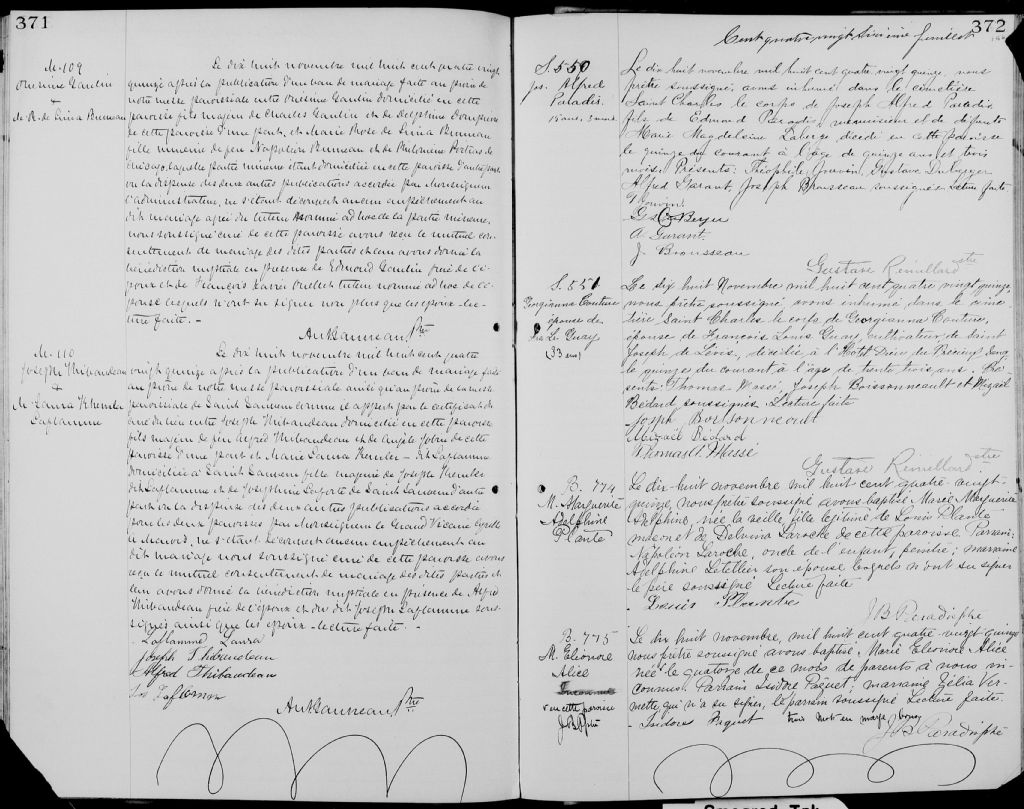 371
M. 109
Onésime Gaulin
+
M. R. de Lima Bruneau
Le dix huit novembre mil huit cent quatre vingt
quinze après la publication d'un ban de mariage faite au prône de
notre messe paroissiale entre Onésime Gaulin domicilié en cette
paroisse fils majeur de Charles Gaulin et de Delphine
de cette paroisse d'une part, et Marie Rose de Lima Bruneau
fille mineure de feu Napoléon Bruneau et de Philomène
Chicago, laquelle partie mineure étant domiciliée en cette paroisse d'autre part
vu la dispense des deux autres publications accordée par Monseigneur
l'administrateur, ne s'étant découvert aucun empêchement au
dit mariage agréé du tuteur nommé ad hoc de la partie mineure,
nous soussigné curé de cette paroisse avons reçu le mutuel con-
sentement de mariage des dites parties et leur avons donné la
bénédiction nuptiale en présence de Edmond Gaulin frère de l'é-
poux et de François Xavier Ouellet tuteur nommé ad hoc de l'é-
pouse lesquels n'ont su signer non plus que les époux. Lec-
ture faite. -
Ptre
M. 110
Joseph Thibaudeau
+
M. Laura Kemler
Laflamme
Le dix huit novembre mil huit cent quatre
vingt quinze après la publication d'un ban de mariage faite
au prône de notre messe paroissiale ainsi qu'au prône de la messe
paroissiale de Saint Samson comme il appert par le certificat du
curé du lieu entre Joseph Thibaudeau domicilié en cette paroisse
fils majeur de feu Alfred Thibaudeau et de Angèle Jobin de cette
paroisse d'une part et Marie Laura Kemler - dit Laflamme
domiciliée à Saint Samson fille majeure de Joseph Kemler
dit Laflamme et de Joséphine Laporte de Saint Samson d'autre
part vu la dispense des deux autres publications accordée
pour les deux paroisses par Monseigneur le Grand Vicaire Cyrille
Marois, ne s'étant découvert aucun empêchement au
dit mariage nous soussigné curé de cette paroisse avons
reçu le mutuel consentement de mariage des dites parties et
leur avons donné la bénédiction nuptiale en présence de Alfred
Thibaudeau frère de l'époux et du dit Joseph Laflamme sous-
signés ainsi que les époux - lecture faite. -
Laflamme Laura
Joseph Thibaudeau
Alfred Thibaudeau
Jos Laflamme
Ptre
372
Cent quatre vingt sixième feuillet
S. 550
Jos. Alfred
Paradis.
15 ans, 3 mois
Le dix huit novembre mil huit cent quatre vingt quinze, nous
prêtre soussigné, avons inhumé dans le cimetière
Saint Charles le corps de Joseph Alfred Paradis
fils de Edmond Paradis menuisier et de défunte
Marie Magdeleine Laberge décédé en cette paroisse
le quinze du courant à l'âge de quinze ans et trois
mois. Présents: Théophile Jouvin, Gustave Duberger
Alfred Garant, Joseph Brousseau soussignés Lecture faite
T. Jouvin.
Gus. Berger
A Garant.
J. Brousseau
Gustave Rémillard ptre
S. 551
Georgianna Couture
épouse de
Frs Ls. Guay
(33 ans)
Le dix huit Novembre mil huit cent quatre vingt quinze,
nous prêtre soussigné avons inhumé dans le cime-
tière Saint Charles le corps de Georgianna Couture,
épouse de François Louis Guay, cultivateur, de Saint
Joseph de Lévis, décédée à l'Hôtel Dieu du Précieux Sang
le quinze du courant à l'âge de trente trois ans. Pré-
sents: Thomas Massé, Joseph Boissonneault et Mizaël
Bédard soussignés. Lecture faite
Joseph Boissonneault
Mizaël Bédard
Thomas Massé
Gustave Rémillard ptre
B. 774
M. Marguerite
Adelphine
Plante
Le dix huit novembre mil huit cent quatre-vingt-
quinze, nous prêtre soussigné avons baptisé Marie Marguerite
Adelphine, née la veille, fille légitime de Louis Plante
et de Delvina Laroche de cette paroisse. Parrain:
Napoléon Laroche, oncle de l'enfant, ; marraine
Adelphine Letellier son épouse lesquels n'ont su signer
le père soussigné Lecture faite
Louis Plante
J B Paradis ptre
B. 775
M. Eléonore
Alice
Inconnue
v en cette paroisse
J B P ptre
Le dix huit novembre, mil huit cent quatre-vingt quinze
nous prêtre soussigné avons baptisé Marie Eléonore Alice
née le quatorze de ce mois de parents à nous in-
connus. Parrain Isidore Paquet, marraine Zélia Ver-
mette, qui n'a su signer, le parrain soussigné Lecture faite.
Isidore Paquet trois mots en marge, bons
J B Paradis ptre